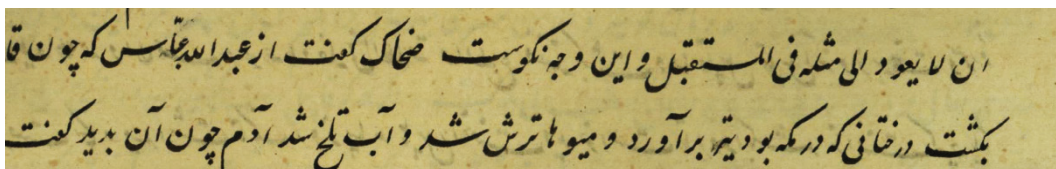 ان لا یعود الی مثله فی المستقبل و این وجه نکوست ضحاک کفت از عبدالله عبّاس که چون قا
بکشت درختانی که در مکه بود تیز برآورد و میوها ترش شد و آب تلخ شد آدم چون آن بدید کفت